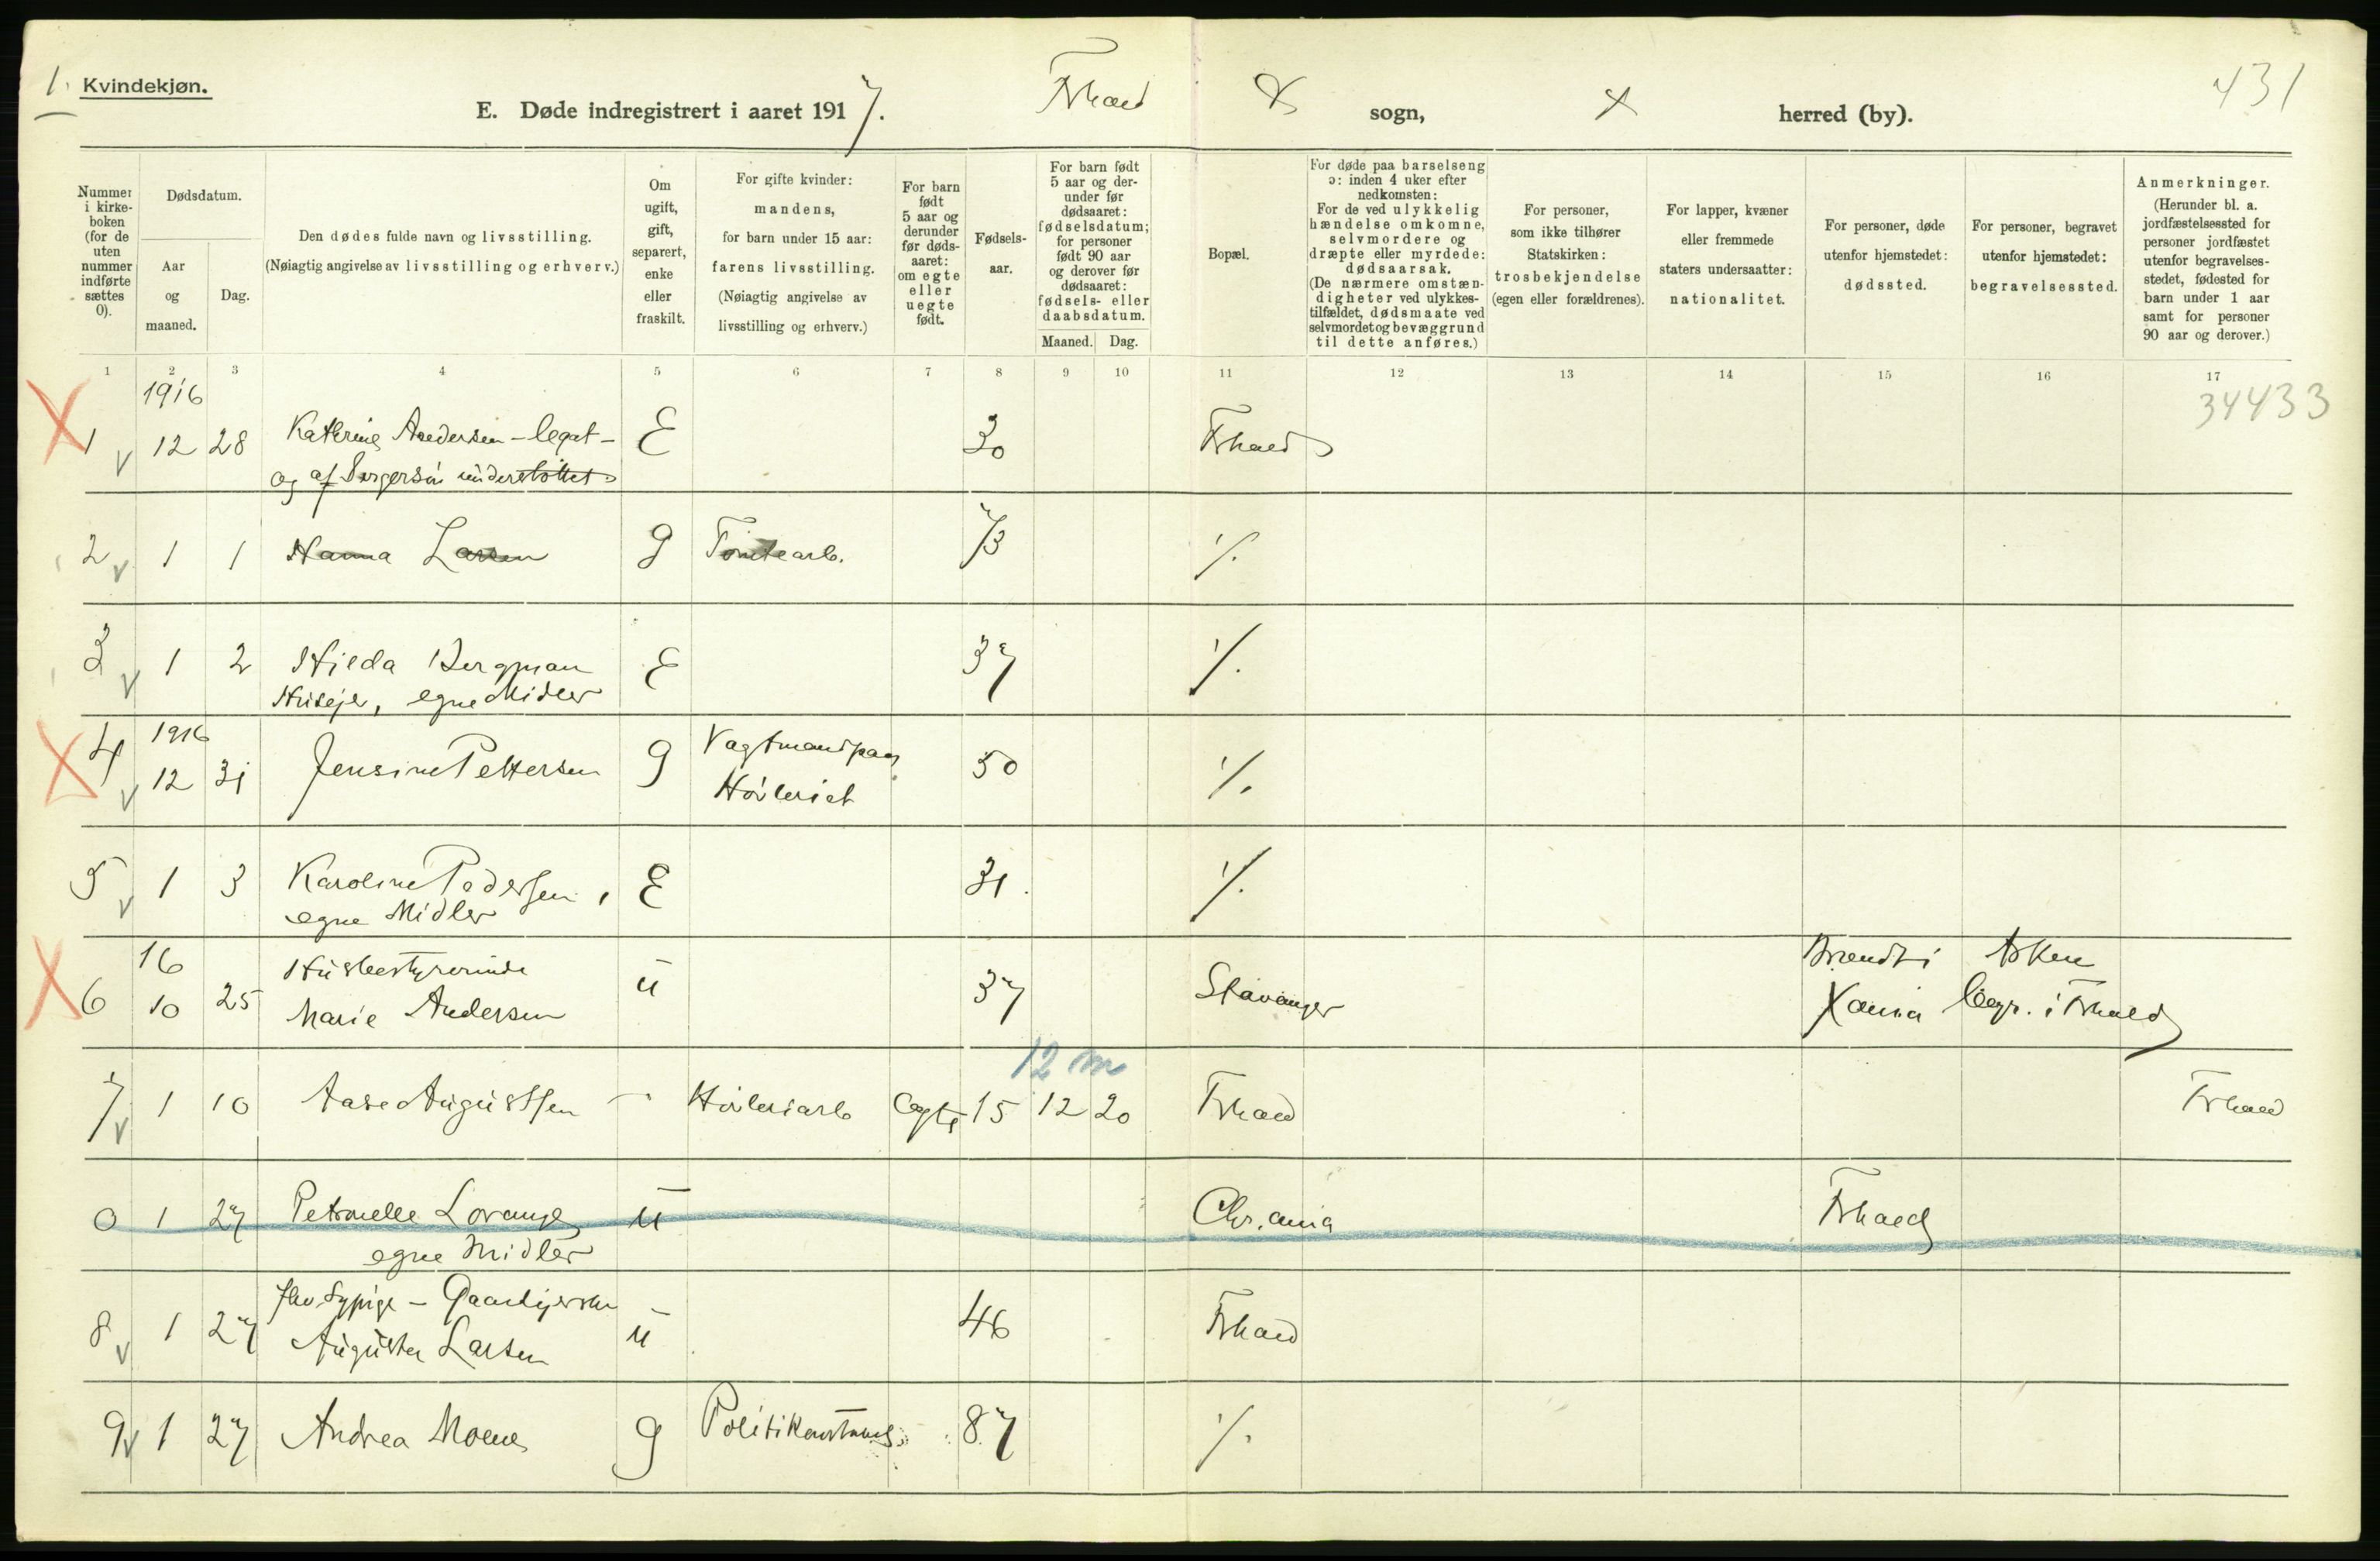 1. Kvindekjøn.
E. Døde indregistrert i aaret 1917. Frhald sogn, herred (by). 431
Nummer i kirkeboken (for de uten nummer indførte sættes 0).
Dødsdatum.
Aar og maaned.
Dag.
Den dødes fulde navn og livsstilling.
(Nøiagtig angivelse av livsstilling og erhverv.)
Om ugift, gift, separert, enke eller fraskilt.
For gifte kvinder: mandens, for barn under 15 aar: farens livsstilling. (Nøiagtig angivelse av livsstilling og erhverv.)
For barn født 5 aar og derunder før dødsaaret: om egte eller uegte født.
Fødselsaar.
For barn født 5 aar og derunder før dødsaaret: fødselsdatum; for personer født 90 aar og derover før dødsaaret: fødsels- eller daabsdatum.
Maaned. Dag.
Bopæl.
For døde paa barselseng ɔ: inden 4 uker efter nedkomsten: For de ved ulykkelig hændelse omkomne, selvmordere og dræpte eller myrdede: dødsaarsak. (De nærmere omstændigheter ved ulykkestilfældet, dødsmaate ved selvmordet og bevæggrund til dette anføres.)
For personer, som ikke tilhører Statskirken: trosbekjendelse (egen eller forældrenes).
For lapper, kvæner eller fremmede staters undersaatter: nationalitet.
For personer, døde utenfor hjemstedet: dødssted.
For personer, begravet utenfor hjemstedet: begravelsessted.
Anmerkninger. (Herunder bl. a. jordfæstelsessted for personer jordfæstet utenfor begravelsesstedet, fødested for barn under 1 aar samt for personer 90 aar og derover.)
1 2 3 4 5 6 7 8 9 10 11 12 13 14 15 16 17
34433
1916
1 v 12 28 Kathrine Andersen - legat - E 30 Frhald
og af understöttet
2 v 1 1 Hanna Larsen g Tomtearb. 73 %.
3 v 1 2 Hilda Bergman E 37 %.
Huseje, egne Midler
1916
4 v 12 31 Jensine Pettersen g Vagtmand paa Høvleriet 50 %.
5 v 1 3 Karoline Pedersen, E 31 %.
egne Midler
16
6 10 25 Husbestyrerinde u 37 Stavanger Brændt i Asken
Marie Andersen Xania begr. i Frhald
12 m
7 v 1 10 Aase Augustsen - Høvleriarb egte 15 12 20 Frhald Frhald
0 1 27 Petronelle Lorange u Chr.ania Frhald
egne Midler
8 v 1 27 Sypige - u 46 Frhald
Augusta Larsen
9 v 1 27 Andrea Moene g Politikonstabel 87 %.